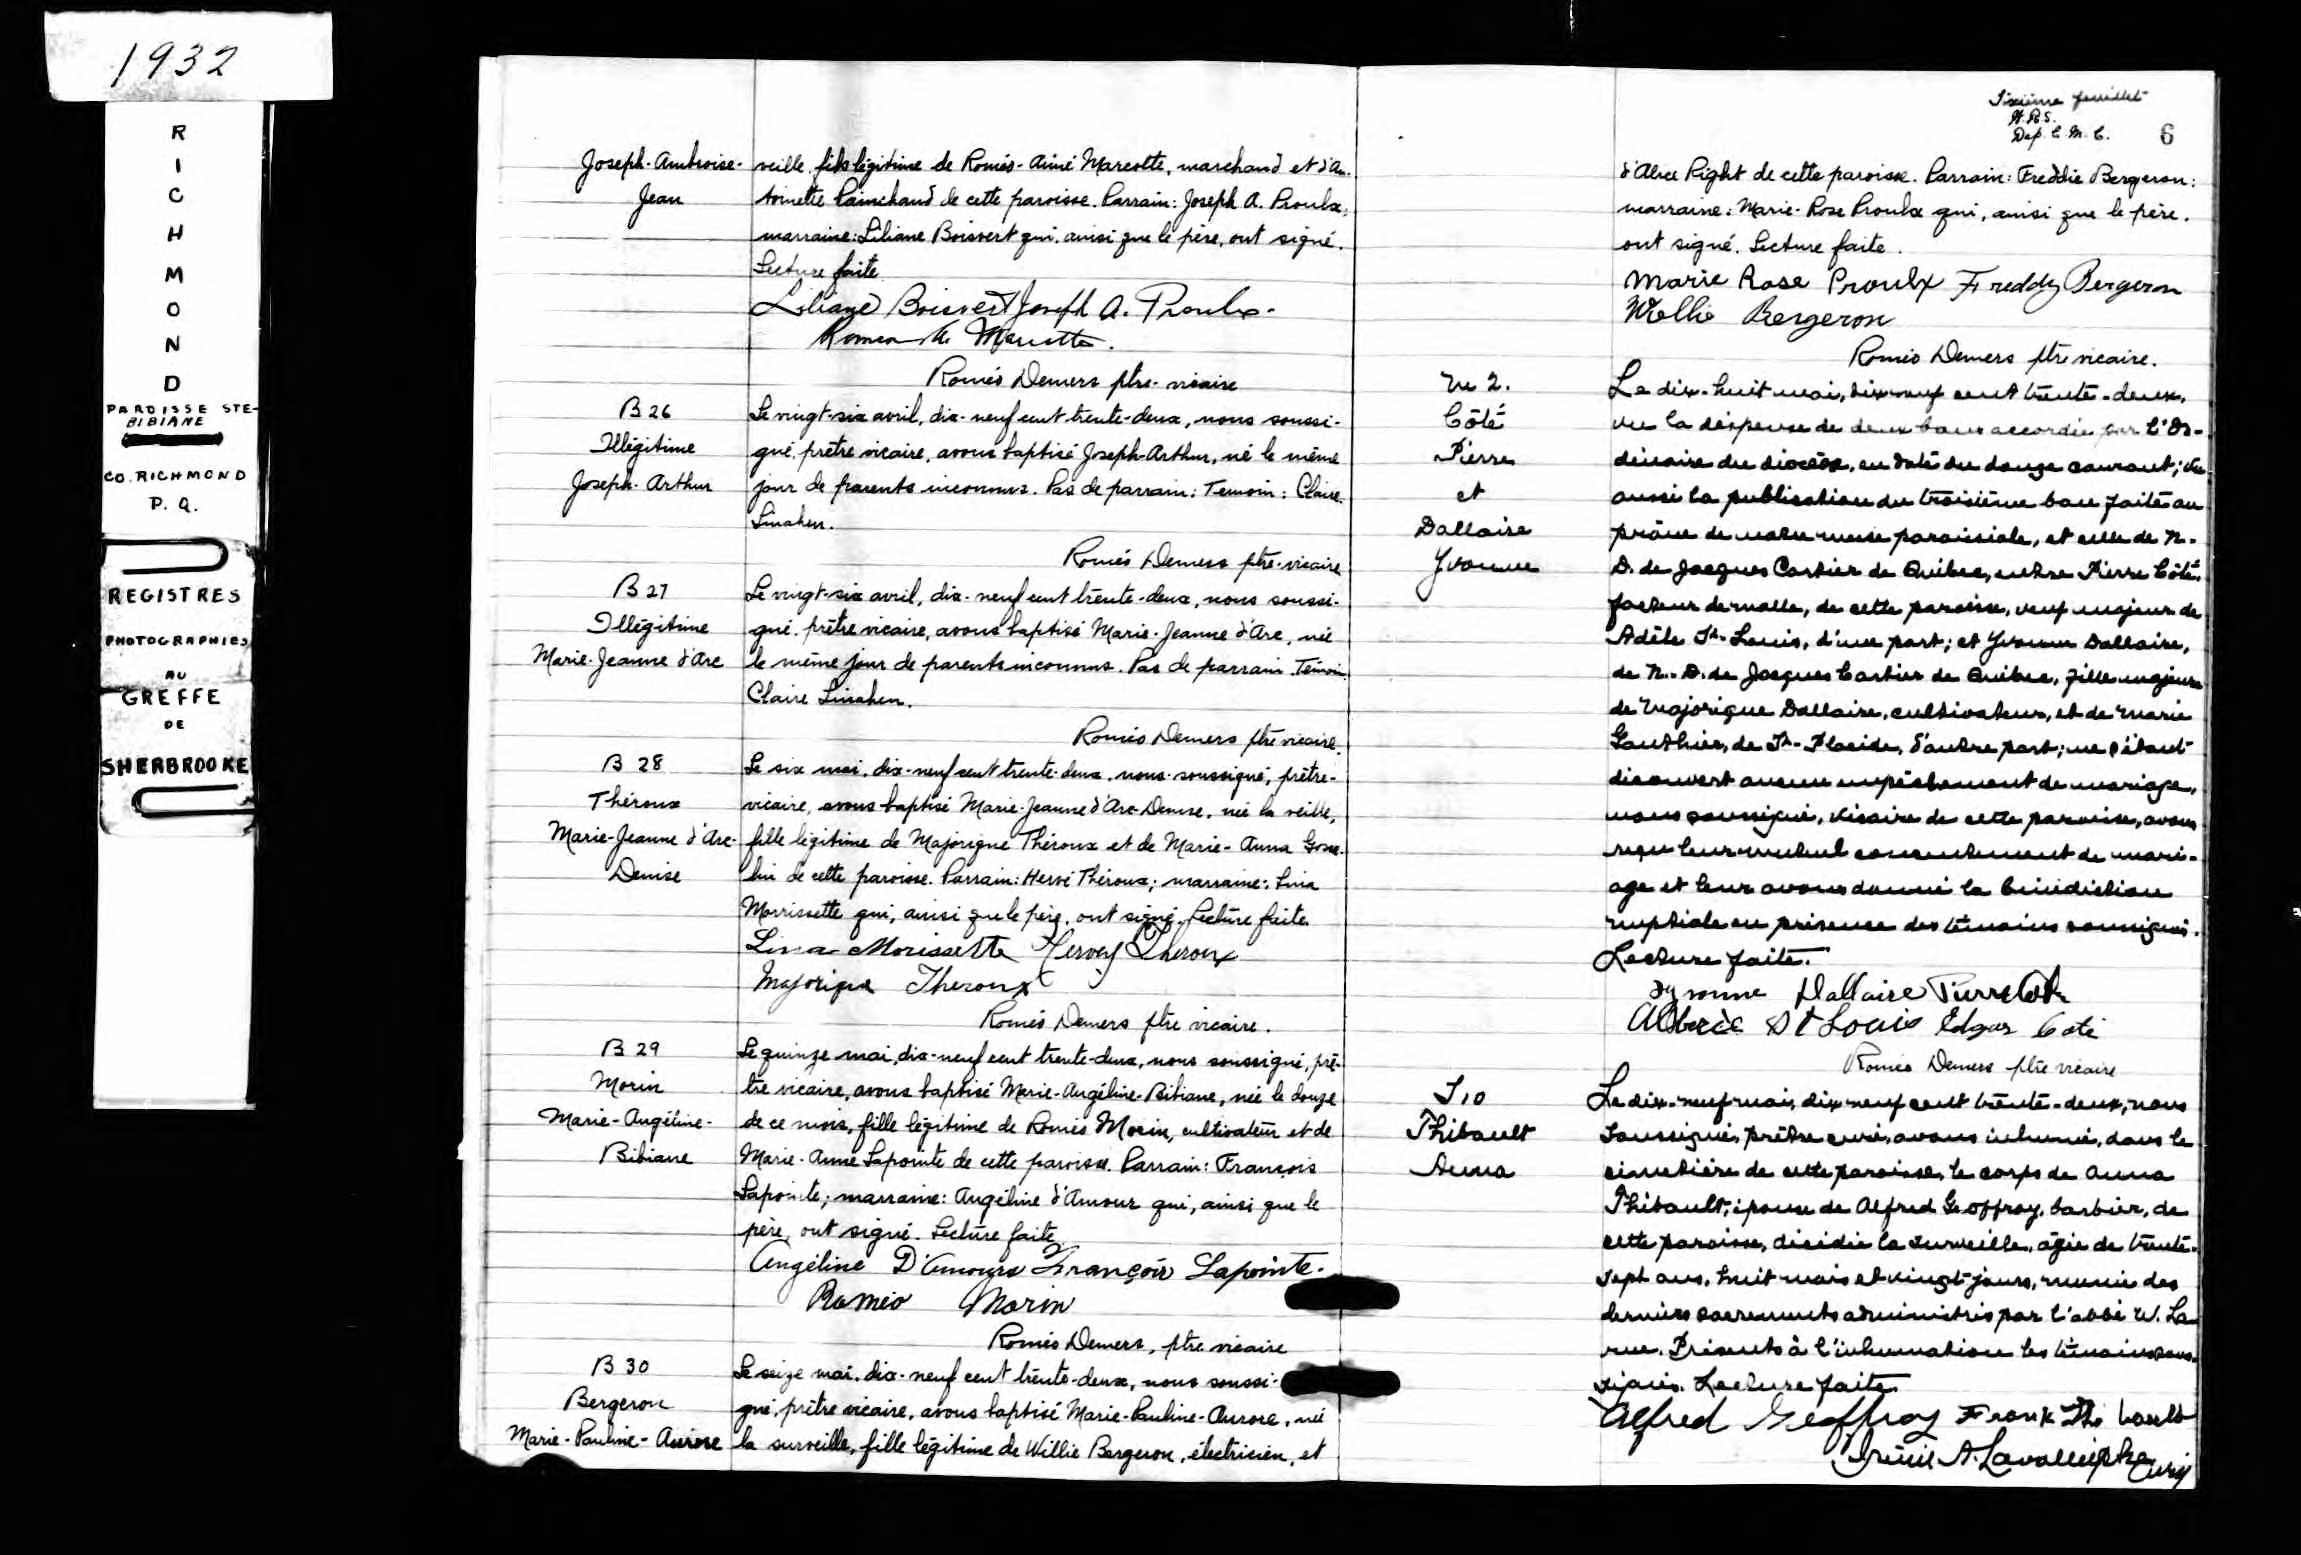 1932
R
I
C
H
M
O
N
D
PAROISSE STE-
BIBIANE
CO. RICHMOND
P. Q.
REGISTRES
PHOTOGRAPHIES
AU
GREFFE
DE
SHERBROOKE
Joseph-Ambroise-
Jean
veille, fils légitime de Roméo-Aimé Marcotte, marchand et d'An-
toinette Painchaud de cette paroisse. Parrain: Joseph A. Proulx;
marraine: Liliane Boisvert qui, ainsi que le père, ont signé.
Lecture faite
Liliane Boisvert Joseph A. Proulx.
Romeo Marcotte.
Roméo Demers ptre-vicaire
B 26
Illégitime
Joseph-Arthur
Le vingt-six avril, dix-neuf cent trente-deux, nous soussi-
gné, prêtre vicaire, avons baptisé Joseph-Arthur, né le même
jour de parents inconnus. Pas de parrain: Temoin: Claire
Linahen.
Roméo Demers ptre-vicaire
B 27
Illégitime
Marie-Jeanne d'Arc
Le vingt-six avril, dix-neuf cent trente-deux, nous soussi-
gné, prêtre vicaire, avons baptisé Marie-Jeanne d'Arc, née
le même jour de parents inconnus. Pas de parrain. Témoin
Claire Linahen.
Roméo Demers ptre vicaire.
B 28
Théroux
Marie-Jeanne d'Arc-
Denise
Le six mai, dix-neuf cent trente-deux, nous soussigné, prêtre-
vicaire, avons baptisé Marie-Jeanne d'Arc-Denise, née la veille,
fille légitime de Majorique Théroux et de Marie-Anna Gosse-
lin de cette paroisse. Parrain: Hervé Théroux; marraine: Lina
Morrissette qui, ainsi que le père, ont signé. Lecture faite.
Lina Morissette Hervey Theroux
Majorique Theroux
Roméo Demers ptre vicaire.
B 29
Morin
Marie-Angéline-
Bibiane
Le quinze mai, dix-neuf cent trente-deux, nous soussigné, prê-
tre vicaire, avons baptisé Marie-Angéline-Bibiane, née le douze
de ce mois, fille légitime de Roméo Morin, cultivateur et de
Marie-Anne Lapointe de cette paroisse. Parrain: François
Lapointe; marraine: Angéline d'Amour qui, ainsi que le
père, ont signé. Lecture faite
Angéline D'Amours François Lapointe.
Roméo Morin
Roméo Demers, ptre vicaire
B 30
Bergeron
Marie-Pauline-Aurore
Le seize mai, dix-neuf cent trente-deux, nous soussi-
gné, prêtre vicaire, avons baptisé Marie-Pauline-Aurore, née
la surveille, fille légitime de Willie Bergeron, électricien, et
Sixième feuillet
Dep. C. M. C.
6
d'Alice Right de cette paroisse. Parrain: Freddie Bergeron:
marraine: Marie-Rose Proulx qui, ainsi que le père.
ont signé. Lecture faite.
Marie Rose Proulx Freddy Bergeron
Wellie Bergeron
Roméo Demers ptre vicaire.
M 2.
Côté
Pierre
et
Dallaire
Yvonne
Le dix-huit mai, dix-neuf cent trente-deux,
vu la dispense de deux bans accordée par l'Or-
dinaire du diocèse, en date du douze courant; vu
aussi la publication du troisième ban faite au
prône de notre messe paroissiale, et celle de N.-
D. de Jacques Cartier de Québec, entre Pierre Côté,
facteur de malle, de cette paroisse, veuf majeur de
Adèle St-Louis, d'une part; et Yvonne Dallaire,
de N.-D. de Jacques Cartier de Québec, fille majeure
de Majorique Dallaire, cultivateur, et de Marie
Gauthier, de St-Placide, d'autre part; ne s'étant
découvert aucun empêchement de mariage,
nous soussigné, vicaire de cette paroisse, avons
reçu leur mutuel consentement de mari-
age et leur avons donné la bénédiction
nuptiale en présence des témoins soussignés.
Lecture faite.
Yvonne Dallaire Pierre Côté
Albéric St Louis Edgar Coté
Roméo Demers ptre vicaire
S 10
Thibault
Anna
Le dix-neuf mai, dix-neuf cent trente-deux, nous
soussigné, prêtre curé, avons inhumé, dans le
cimetière de cette paroisse, le corps de Anna
Thibault, épouse de Alfred Geoffroy, barbier, de
cette paroisse, décédée la surveille, âgée de trente-
sept ans, huit mois et vingt jours, munie des
derniers sacrements administrés par l'abbé W. La-
rue. Présents à l'inhumation les témoins sous-
signés. Lecture faite.
Alfred Geoffroy Frank Thibault
Irénée A. Lavallée ptre
Curé